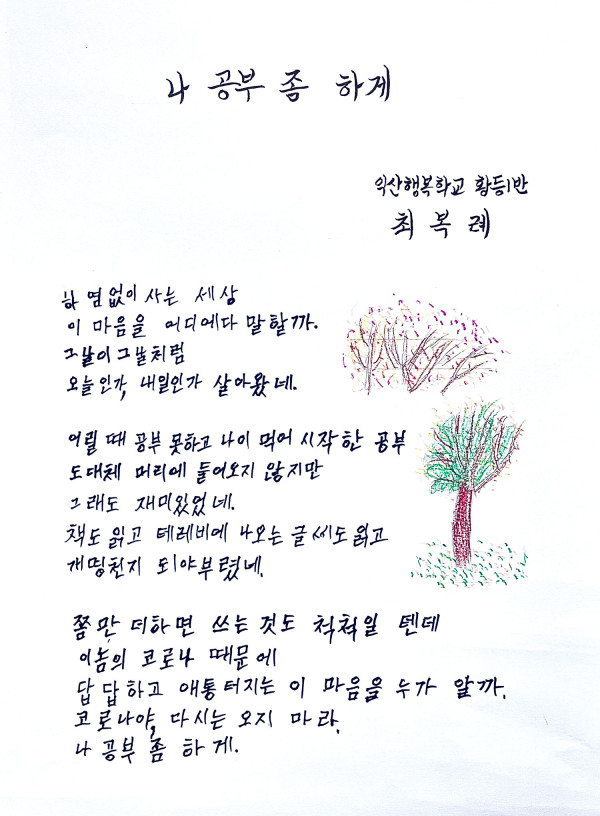 나 공부 좀 하게
익산행복학교 황등1반
최복례
하염없이 사는 세상
이 마음을 어디에다 말할까.
그날이그날처럼
오늘인가, 내일인가 살아왔네.
어릴 때 공부 못하고 나이 먹어 시작한 공부
도대체 머리에 들어오지 않지만
그래도 재미있었네.
책도 읽고 테레비에 나오는 글씨도 읽고
개띵천지 되야부렸네.
쫌만 더하면 쓰는 것도 척척일 텐데
이놈의 코로나 때문에
답답하고 애통터지는 이 마음을 누가 알까.
코로나야, 다시는 오지 마라.
나 공부 좀 하게.